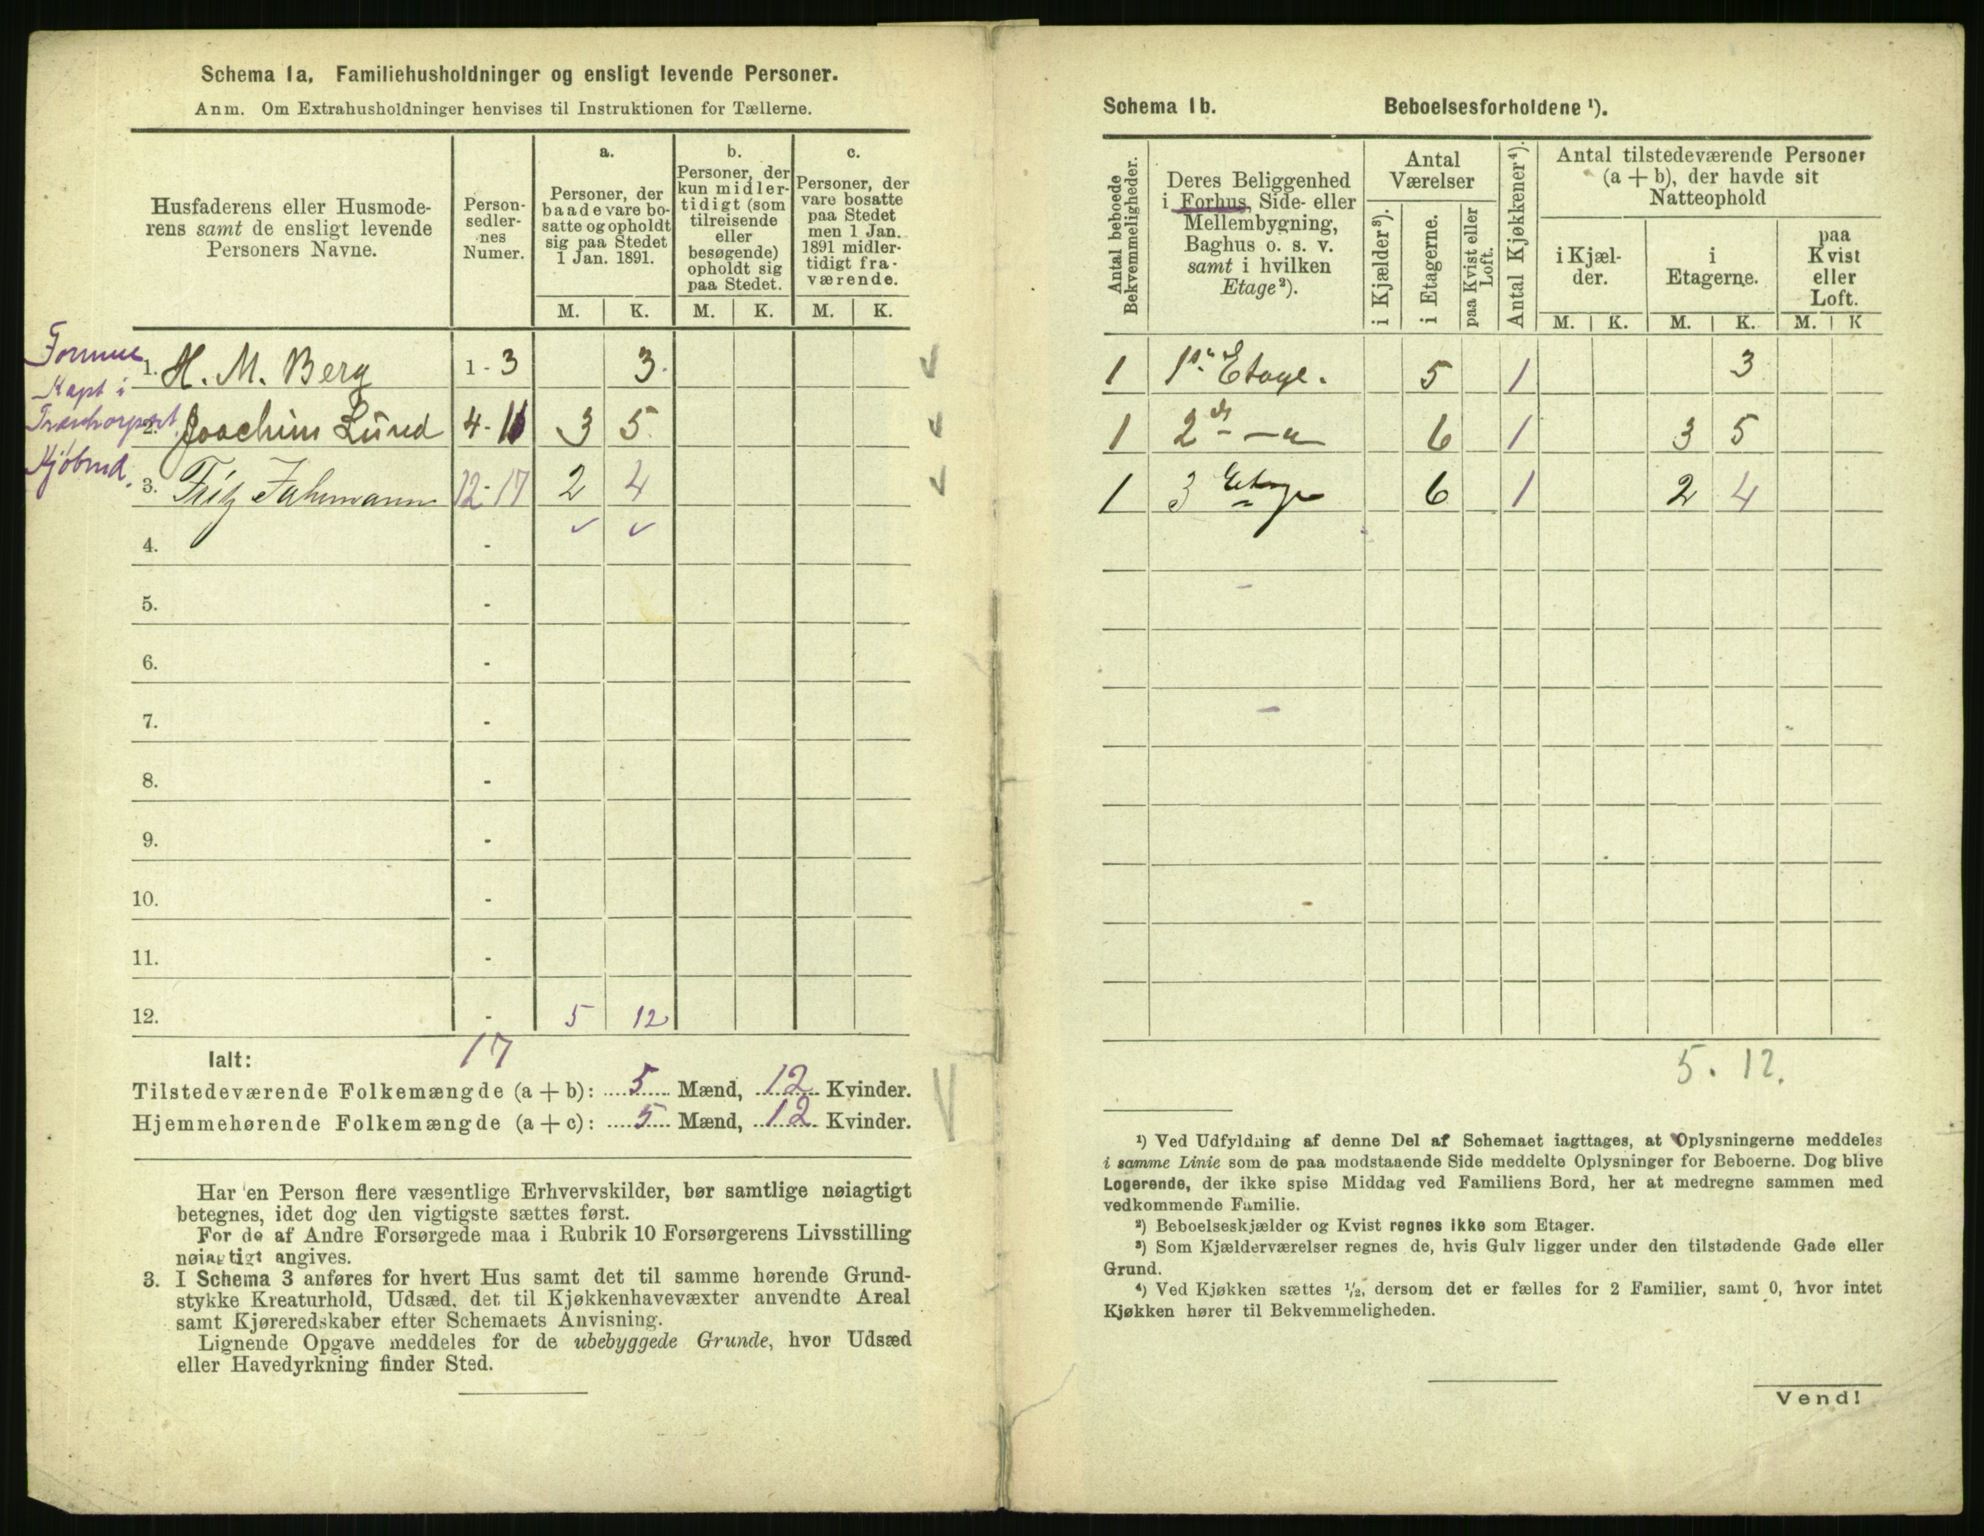 Schema 1a, Familiehusholdninger og ensligt levende Personer.
Anm. Om Extrahusholdninger henvises til Instruktionen for Tællerne.
Husfaderens eller Husmoderens samt de ensligt levende Personers Navne.
Person-
sedler-
nes
Numer.
a.
Personer, der
baade vare bo-
satte og opholdt
sig paa Stedet
1 Jan. 1891.
b.
Personer, der
kun midler-
tidigt (som
tilreisende
eller
besøgende)
opholdt sig
paa Stedet.
c.
Personer, der
vare bosatte
paa Stedet
men 1 Jan.
1891 midler-
tidigt fra-
værende.
M. K. M. K. M. K.
1. H. M. Berg 1 - 3 3.
Kapt i
2. Joachim Lund 4 - 11 3 5.
3. Fritz Jahrmann 12 - 17 2 4
4. -
5. -
6. -
7. -
8. -
9. -
10. -
11. -
12. - 5 12
Ialt: 17
Tilstedeværende Folkemængde (a + b): 5 Mænd, 12 Kvinder.
Hjemmehørende Folkemængde (a + c): 5 Mænd, 12 Kvinder.
Har en Person flere væsentlige Erhvervskilder, bør samtlige nøiagtigt
betegnes, idet dog den vigtigste sættes først.
For de af Andre Forsørgede maa i Rubrik 10 Forsørgerens Livsstilling
nøiagtigt angives.
3. I Schema 3 anføres for hvert Hus samt det til samme hørende Grund-
stykke Kreaturhold, Udsæd, det til Kjøkkenhavevæxter anvendte Areal
samt Kjøreredskaber efter Schemaets Anvisning.
Lignende Opgave meddeles for de ubebyggede Grunde, hvor Udsæd
eller Havedyrkning finder Sted.
Schema 1b. Beboelsesforholdene ¹).
Antal beboede
Bekvemmeligheder.
Deres Beliggenhed
i Forhus, Side- eller
Mellembygning,
Baghus o. s. v.
samt i hvilken
Etage²).
Antal
Værelser
i Kjælder³).
i Etagerne.
paa Kvist eller
Loft.
Antal Kjøkkener⁴).
Antal tilstedeværende Personer
(a + b), der havde sit
Natteophold
i Kjæl-
der.
i
Etagerne.
paa
Kvist
eller
Loft.
M. K. M. K. M. K
1 1ste Etage. 5 1 3
1 2den - " - 6 1 3 5
1 3 Etage 6 1 2 4
5. 12.
¹) Ved Udfyldning af denne Del af Schemaet iagttages, at Oplysningerne meddeles
i samme Linie som de paa modstaaende Side meddelte Oplysninger for Beboerne. Dog blive
Logerende, der ikke spise Middag ved Familiens Bord, her at medregne sammen med
vedkommende Familie.
²) Beboelseskjælder og Kvist regnes ikke som Etager.
³) Som Kjælderværelser regnes de, hvis Gulv ligger under den tilstødende Gade eller
Grund.
⁴) Ved Kjøkken sættes ½, dersom det er fælles for 2 Familier, samt 0, hvor intet
Kjøkken hører til Bekvemmeligheden.
Vend!